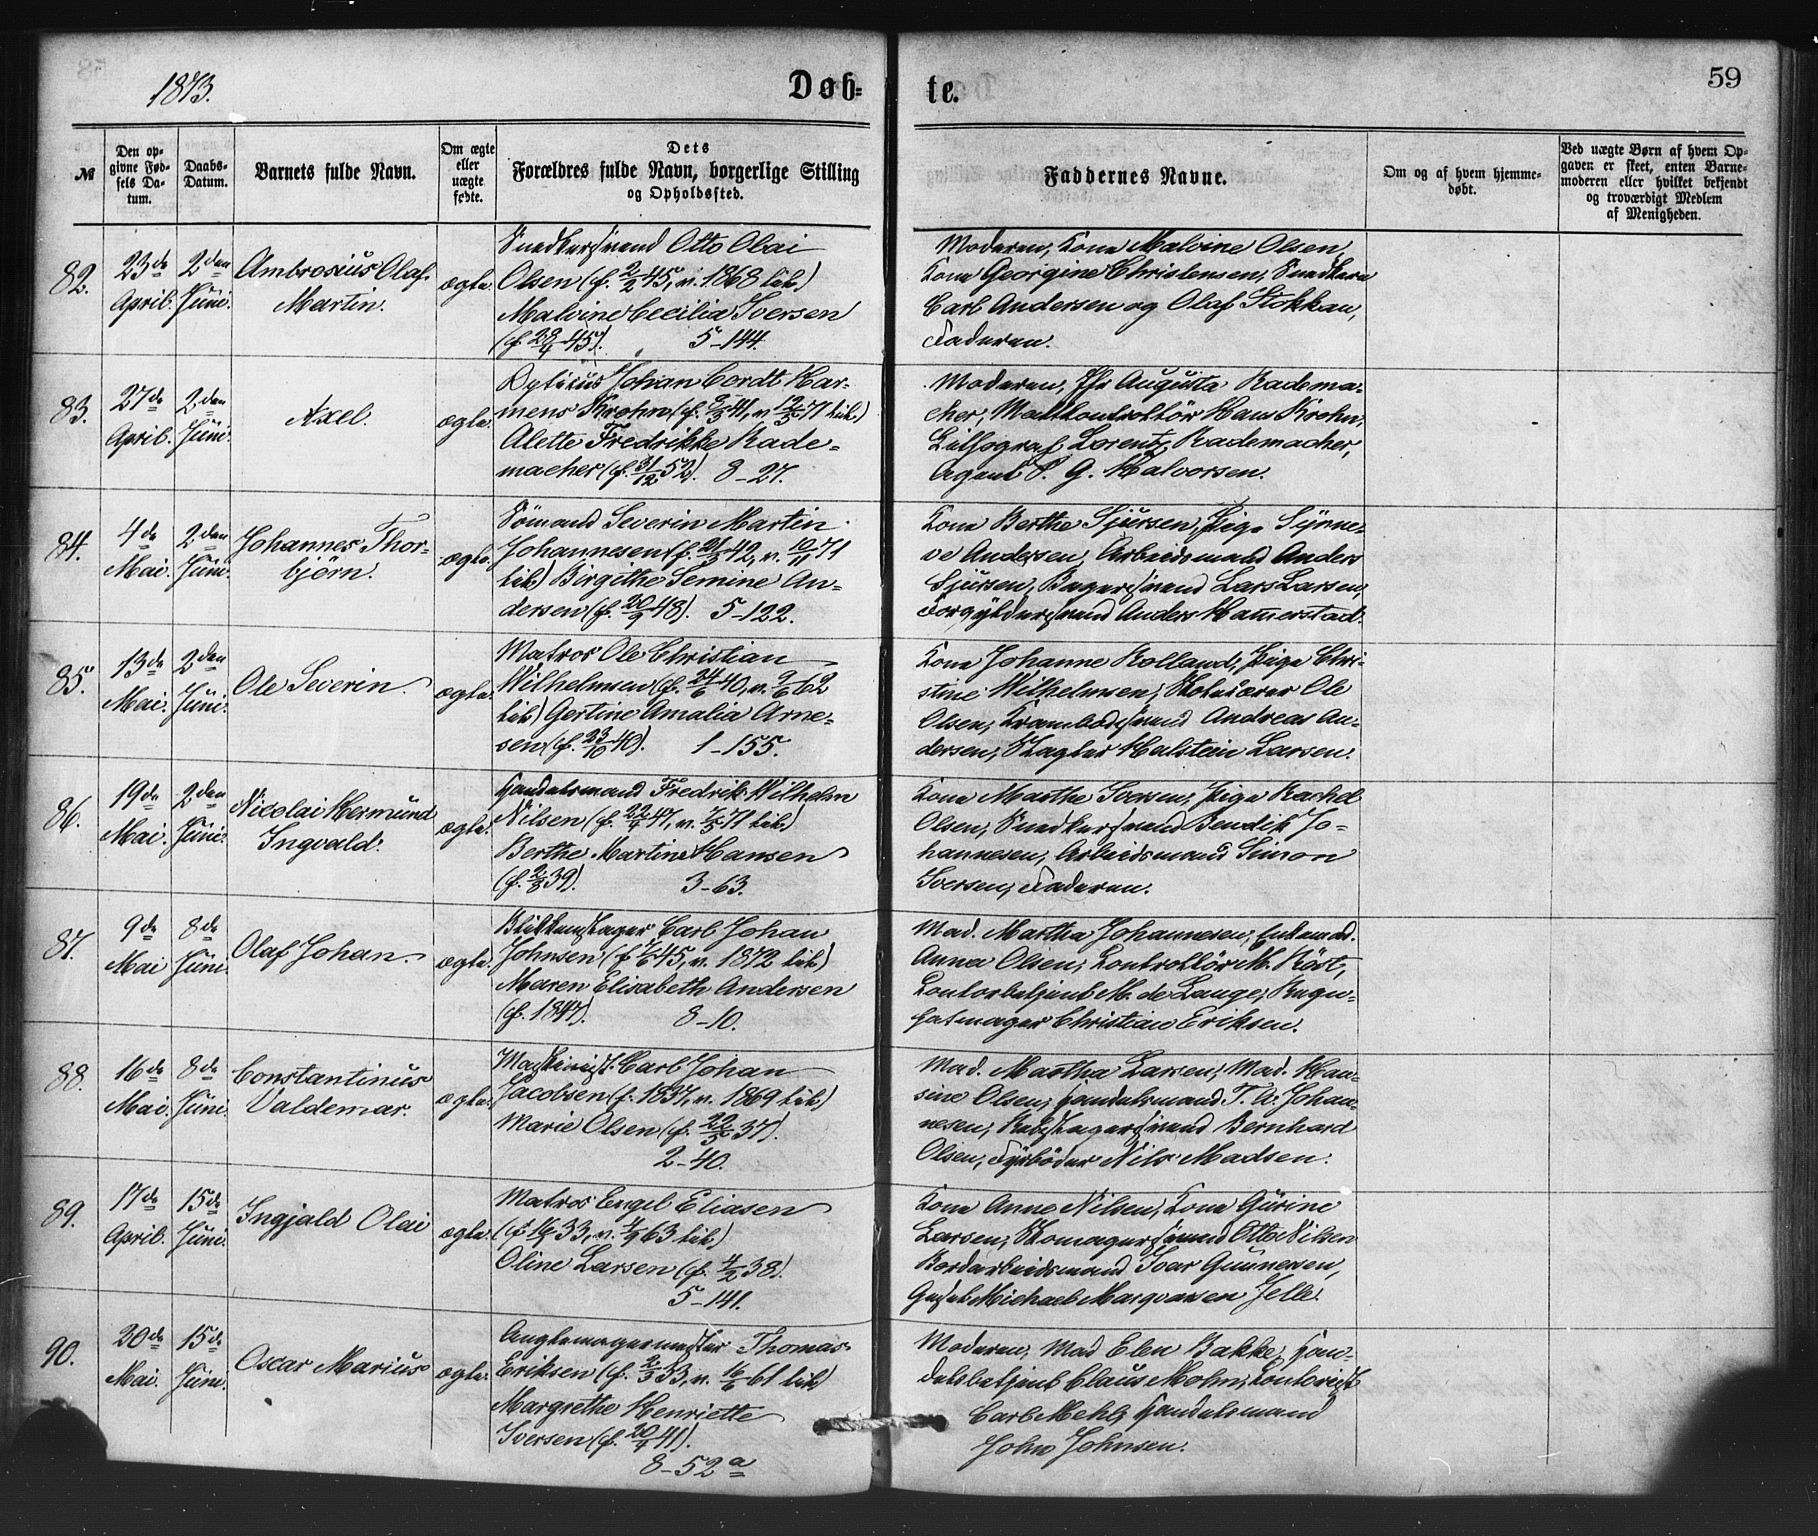 1873.
Døb-
te.
59
№
Den op-
givne Fød-
sels Da-
tum.
Daabs-
Datum.
Barnets fulde Navn.
Om ægte
eller
uægte
fødte.
Dets
Forældres fulde Navn, borgerlige Stilling
og Opholdssted.
Faddernes Navne.
Om og af hvem hjemme-
døbt.
Ved uægte Børn af hvem Op-
gaven er skeet, enten Barne-
moderen eller hvilket bekjendt
og troværdigt Medlem
af Menigheden.
82.
23de
April.
2den
Juni.
Ambrosius Olaf
Martin.
ægte.
Snedkersvend Otto Olai
Olsen (f. 2/2 45, v. 1868 lib.)
Malvine Cecilia Iversen
(f. 45). 5-144.
Moderen, Kone Malvine Olsen,
Kone Georgine Christensen, Snedkere
Carl Andersen og Olaf Stokkan,
Faderen.
83.
27de
April.
2den
Juni.
Axel.
ægte.
Opticus Johan Cordt Har-
mens Krohn (f. 41, v. 71 lib.)
Alette Fredrikke Rade-
macher (f. 31/12 52). 8-27.
Moderen, Augusta Radema-
cher, Kontrollör Hans Krohn,
Lithograf Lorentz Rademacher,
Agent P. G. Halvorsen.
84.
4de
Mai.
2den
Juni.
Johannes Thor-
bjørn.
ægte.
Sömand Severin Martin
Johannesen (f. 42, v. 71
lib.) Birgithe Semine An-
dersen (f. 20/9 48). 5-122.
Kone Berthe Sjursen, Pige Synne-
ve Andersen, Arbeidsmand Anders
Sjursen, Bagersvend Lars Larsen,
Forgyldersvend Anders Hamerstad.
85.
13de
Mai.
2den
Juni.
Ole Severin.
ægte.
Matros Ole Christian
Wilhelmsen (f. 24/6 40, v. 62
lib.) Gertine Amalia Arne-
sen (f. 40). 1-155.
Kone Johanne Rolland, Pige Chri-
stine Wilhelmsen, Ole
Olsen, Krambodsvend Andreas An-
dersen, Slagter Halstein Larsen.
86.
19de
Mai.
2den
Juni.
Nicolai Hermund
Ingvald.
ægte.
Handelsmand Fredrik Wilhelm
Nilsen (f. 22/4 47, v. 71 lib.)
Berthe Martine Hansen
(f. 2/8 39). 3-63.
Kone Marthe Iversen, Pige Rachel
Olsen, Snedkersvend Bendik Jo-
hannesen, Arbeidsmand Simon
Iversen, Faderen.
87.
9de
Mai
8de
Juni.
Olaf Johan.
ægte.
Blikkenslager Carl Johan
Johnsen (f. 45, v. 1872 lib.)
Maren Elisabeth Andersen
(f. 1847). 8-10.
Mad. Martha Johannesen,
Anna Olsen, Kontrollör M. Röst,
Contorbetjent M. de Lange,
Christian Eriksen.
88.
16de
Mai.
8de
Juni.
Constantinus
Valdemar.
ægte.
Maskinist Carl Johan
Jacobsen (f. 1837, v. 1869 lib.)
Marie Olsen (f. 37).
2-40.
Mad. Martha Larsen, Mad. Han-
sine Olsen, Handelsmand T. A. Johan-
nesen, Rebslagersvend Bernhard
Olsen, Fyrböder Nils Madsen.
89.
17de
April.
15de
Juni.
Ingjald Olai
ægte.
Matros Engel Eliasen
(f. 33, v. 63 lib.)
Oline Larsen (f. 4/2 38).
5-141.
Kone Anne Nilsen, Kone Gurine
Larsen, Skomagersvend Otto Nilsen
Bordarbeidsmand Ivar Gunnersen,
Michael Jelle.
90.
20de
Mai.
15de
Juni.
Oscar Marius
ægte.
Thomas
Eriksen (f. 2/3 33, v. 16/6 61 lib.)
Margrethe Henriette
Iversen (f. 41).
8-52a
Moderen, Mad Elen Bakke, Han-
delsbetjent Claus Mohn, Contorist
Carl Mehl, Handelsmand
John Johnsen.